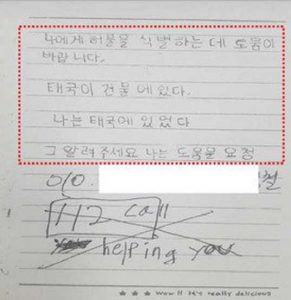 나에게 허물물 식별하는 데 도움이
바랍니다.
태국이 건물에있다.
나는 태국에 있었다
그 알려주세요 나는 도움을 요청
010.
112 call
helping you
★ ★ ★ Wow!! It's really delicious